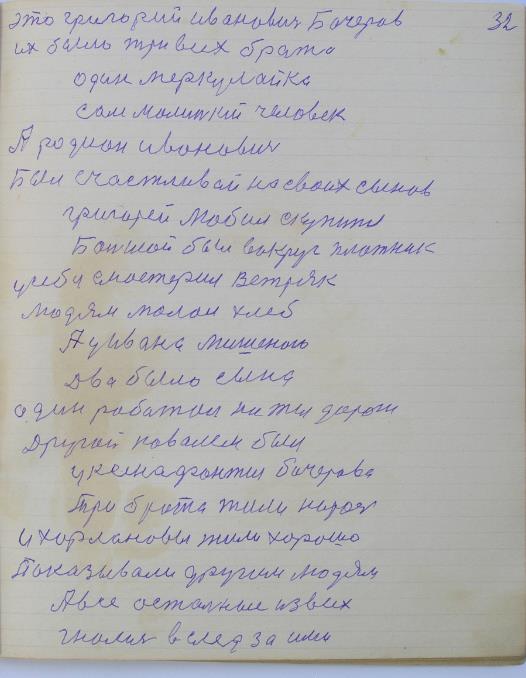 это григорий иванович Бочеров 32
их было три в их брата
один меркулайка
сам молиткий человек
А родион иванович
Был счастливай на своих сынов
григорей мобил скупится
Болшой был вокруг плотник
у себя смостерил Ветряк
людям молол хлеб
А у Ивана мишеного
Два было сына
один работал на жел дароги
Другой коваLем был
у ксенафонтия бочерова
Три брота жили
и харлановы жили хорошо
Показывали другим людям
А все осталные из в их
гнолися в след за ими